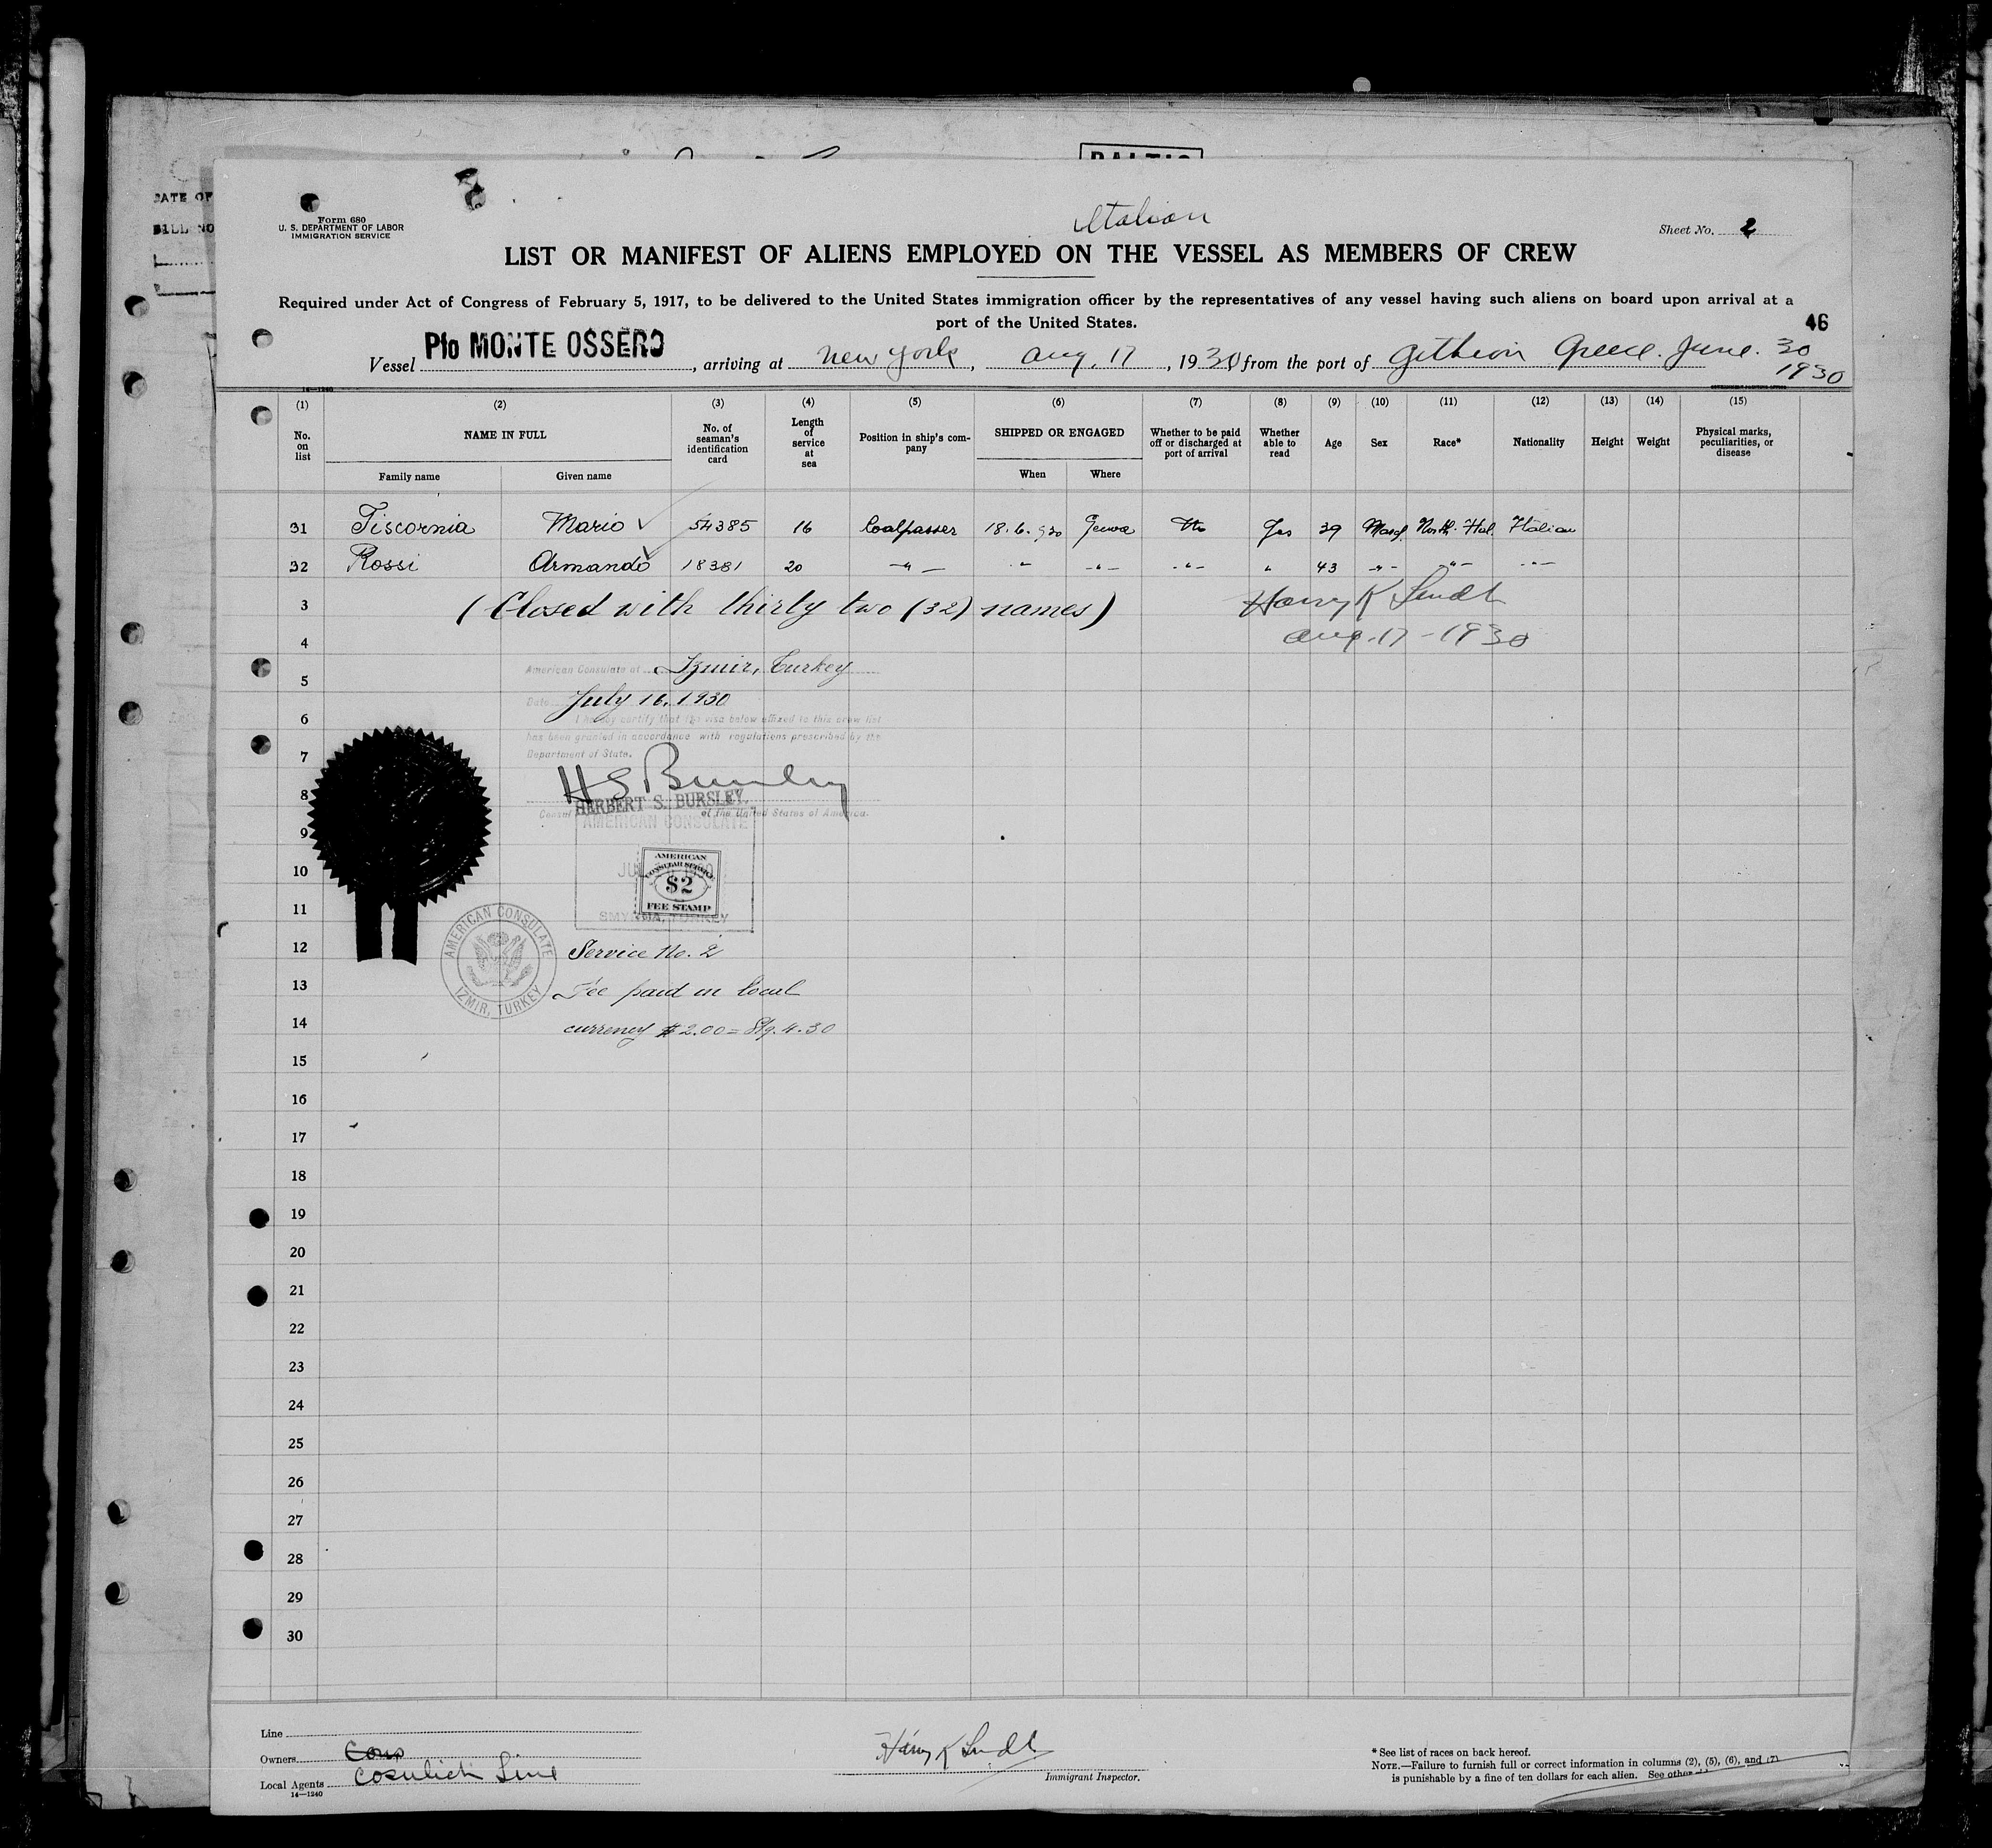 DATE OF
BILL NO
BALTIC
Form 680
U. S. DEPARTMENT OF LABOR
IMMIGRATION SERVICE
Italian
Sheet No. 2
LIST OR MANIFEST OF ALIENS EMPLOYED ON THE VESSEL AS MEMBERS OF CREW
Required under Act of Congress of February 5, 1917, to be delivered to the United States immigration officer by the representatives of any vessel having such aliens on board upon arrival at a
port of the United States.
46
Vessel Pfo MONTE OSSERO, arriving at New York, Aug. 17, 1930 from the port of Githion Greece. June. 30
1930
14—1240
(1) (2) (3) (4) (5) (6) (7) (8) (9) (10) (11) (12) (13) (14) (15)
No. on list
NAME IN FULL
Family name
Given name
No. of seaman's identification card
Length of service at sea
Position in ship's company
SHIPPED OR ENGAGED
When
Where
Whether to be paid off or discharged at port of arrival
Whether able to read
Age
Sex
Race*
Nationality
Height
Weight
Physical marks, peculiarities, or disease
31 Tiscornia Mario 54385 16 Coalpasser 18.6.930 Genoa No Yes 39 North Italian
32 Rossi Armando 18381 20 -"- " -"- -"- " 43 -"- -"- -"-
3 (Closed with thirty two (32) names)
4 Aug. 17 - 1930
American Consulate at Izmir, Turkey
5
Date July 16, 1930
6 I hereby certify that the visa below affixed to this crew list
has been granted in accordance with regulations prescribed by the
7 Department of State.
H S Bursley
8 HERBERT S. BURSLEY,
Consul of the United States of America.
AMERICAN CONSULATE
9
AMERICAN
CONSULAR SERVICE
10
$2
FEE STAMP
11
SMYRNA, TURKEY
AMERICAN CONSULATE
IZMIR, TURKEY
12 Service No. 2
13 Fee paid in local
14 currency $2.00 = Stg. 4.30
15
16
17
18
19
20
21
22
23
24
25
26
27
28
29
30
Line
Owners
Local Agents Cosulich Line
14—1240
Immigrant Inspector.
* See list of races on back hereof.
NOTE.—Failure to furnish full or correct information in columns (2), (5), (6), and (7)
is punishable by a fine of ten dollars for each alien. See other